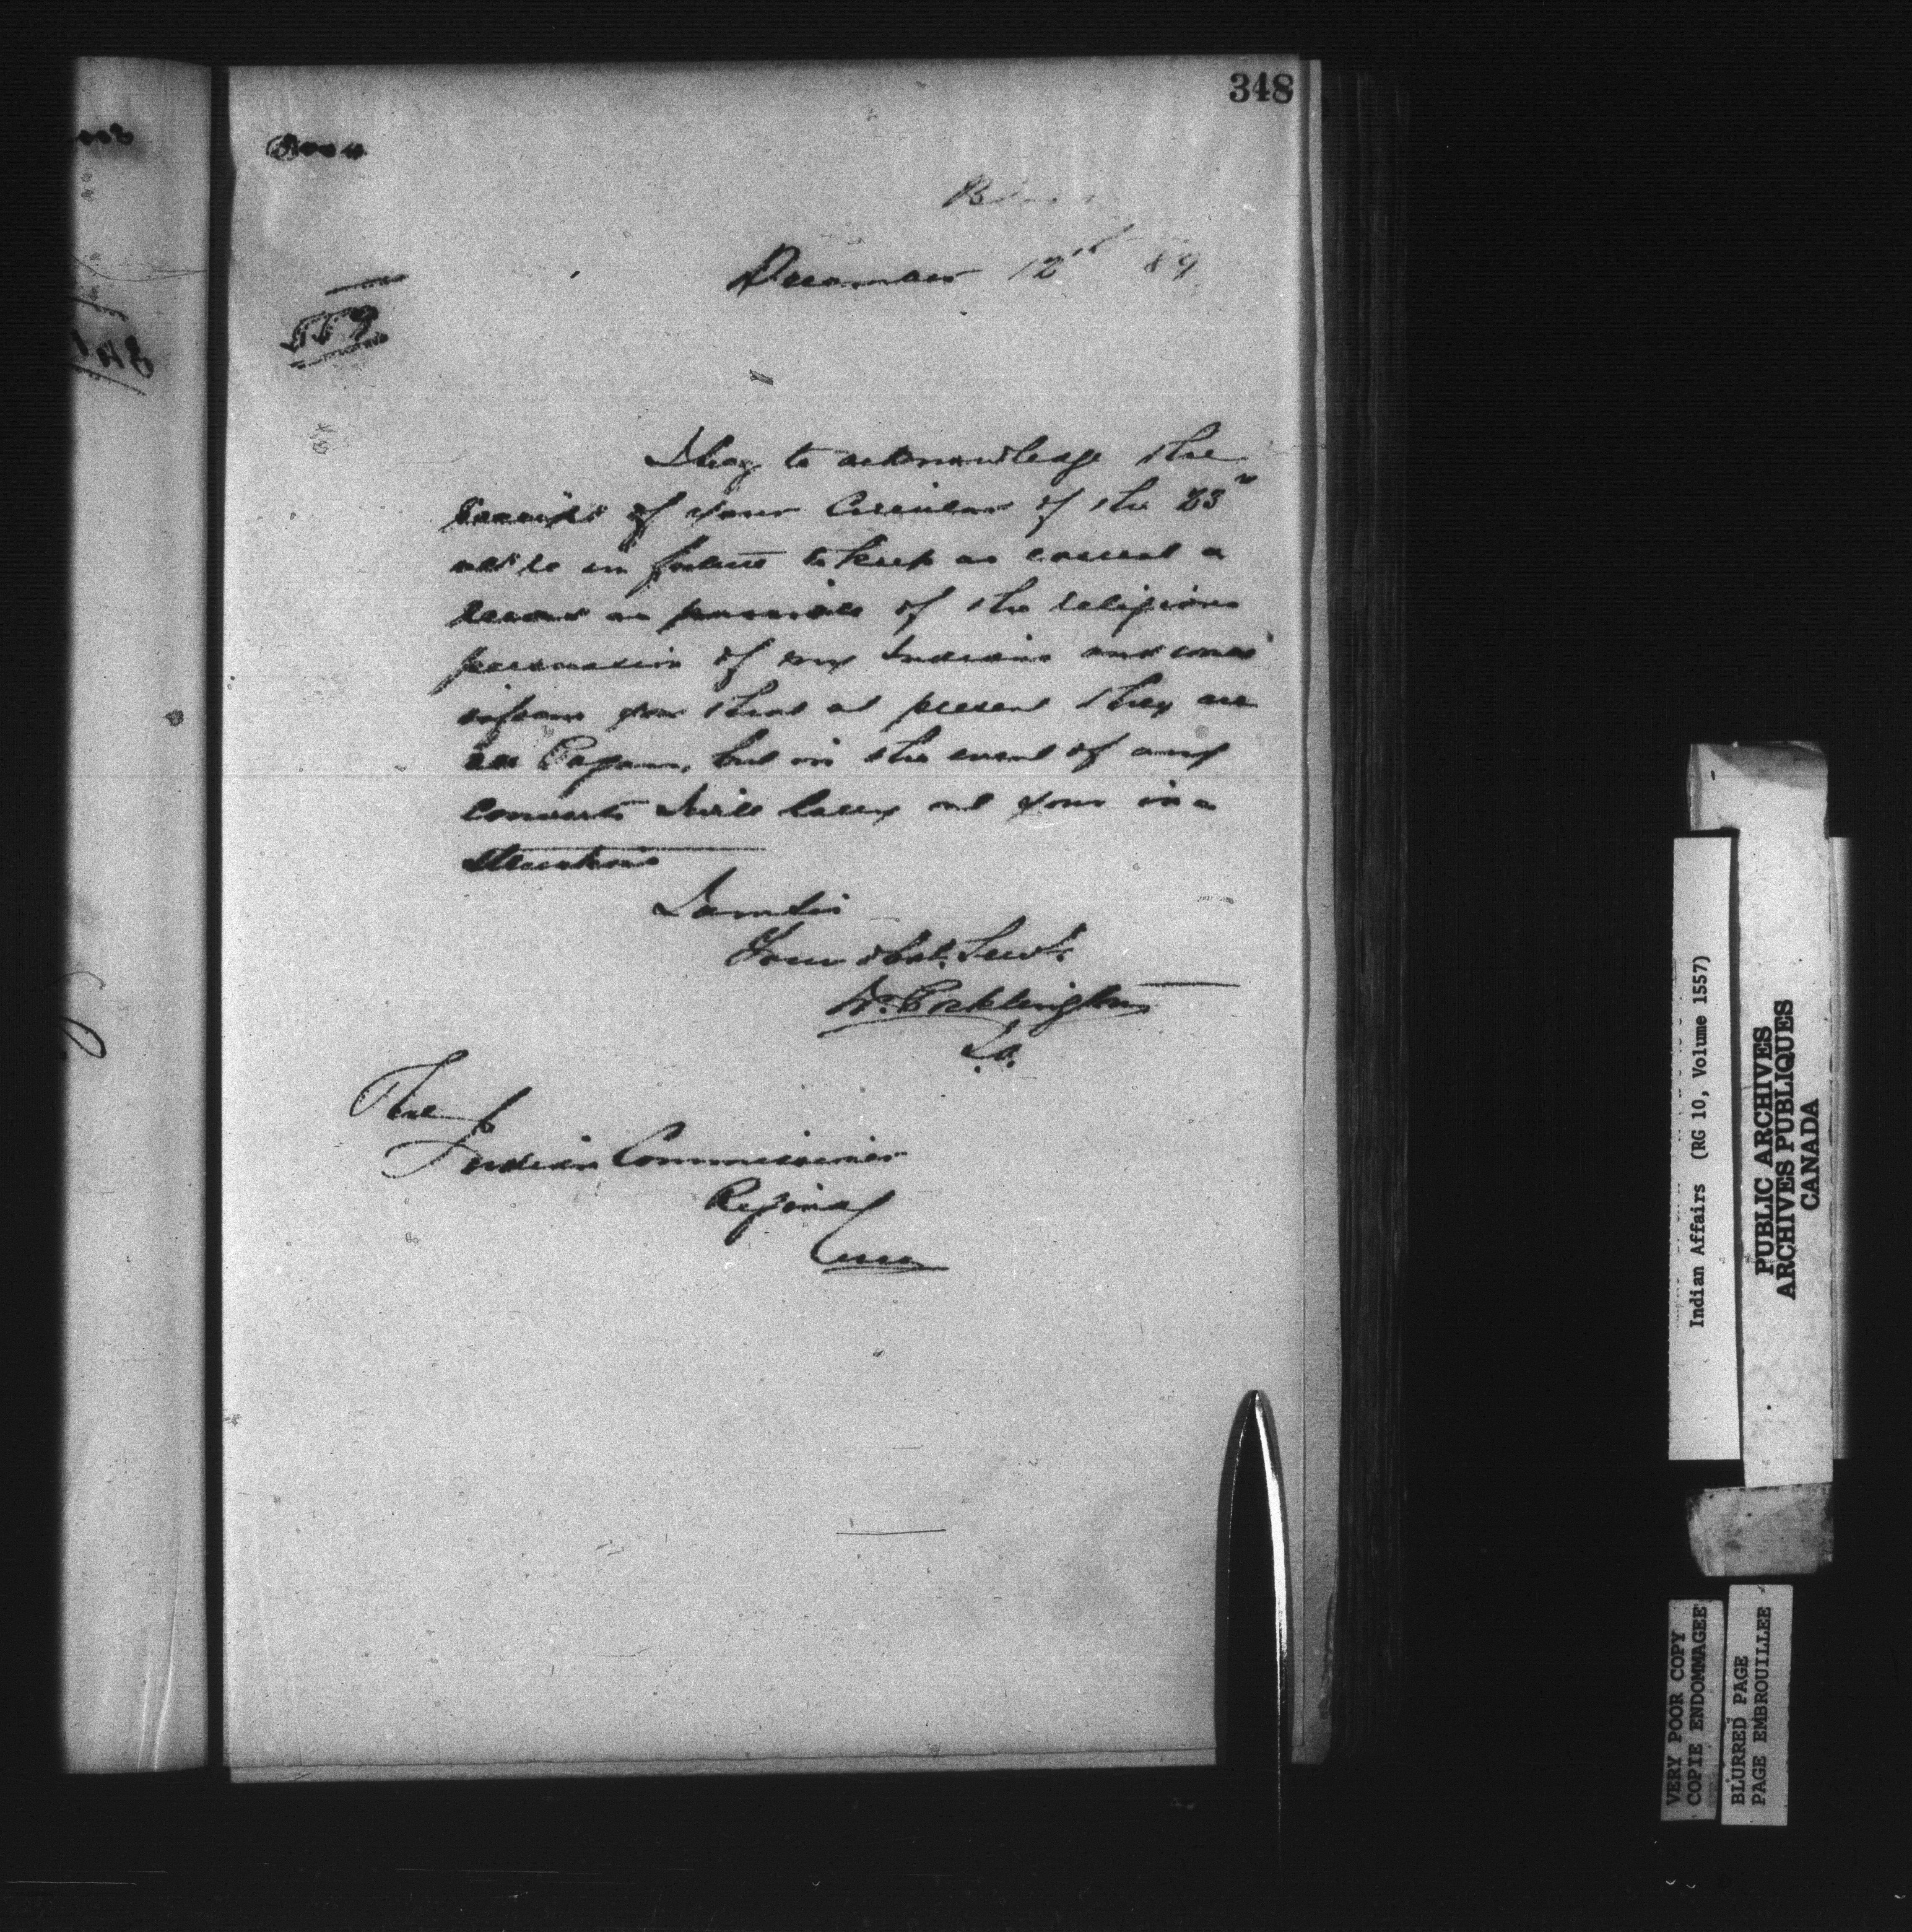 348
December 12th 89
559
I beg to acknowledge the
receipt of your Circular of the 23rd
ulto in future to keep as correct a
record as possible of the religious
persuasion of my Indians and would
inform you that at present they are
all Pagans, but in the event of any
converts I will carry out your in-
structions
I am Sir
Your obdt. Servt.
W. Pocklington
I.A.
The
Indian Commissioner
Regina
Assa
Indian Affairs (RG 10, Volume 1557)
PUBLIC ARCHIVES
ARCHIVES PUBLIQUES
CANADA
VERY POOR COPY
COPIE ENDOMMAGEE
BLURRED PAGE
PAGE EMBROUILLEE